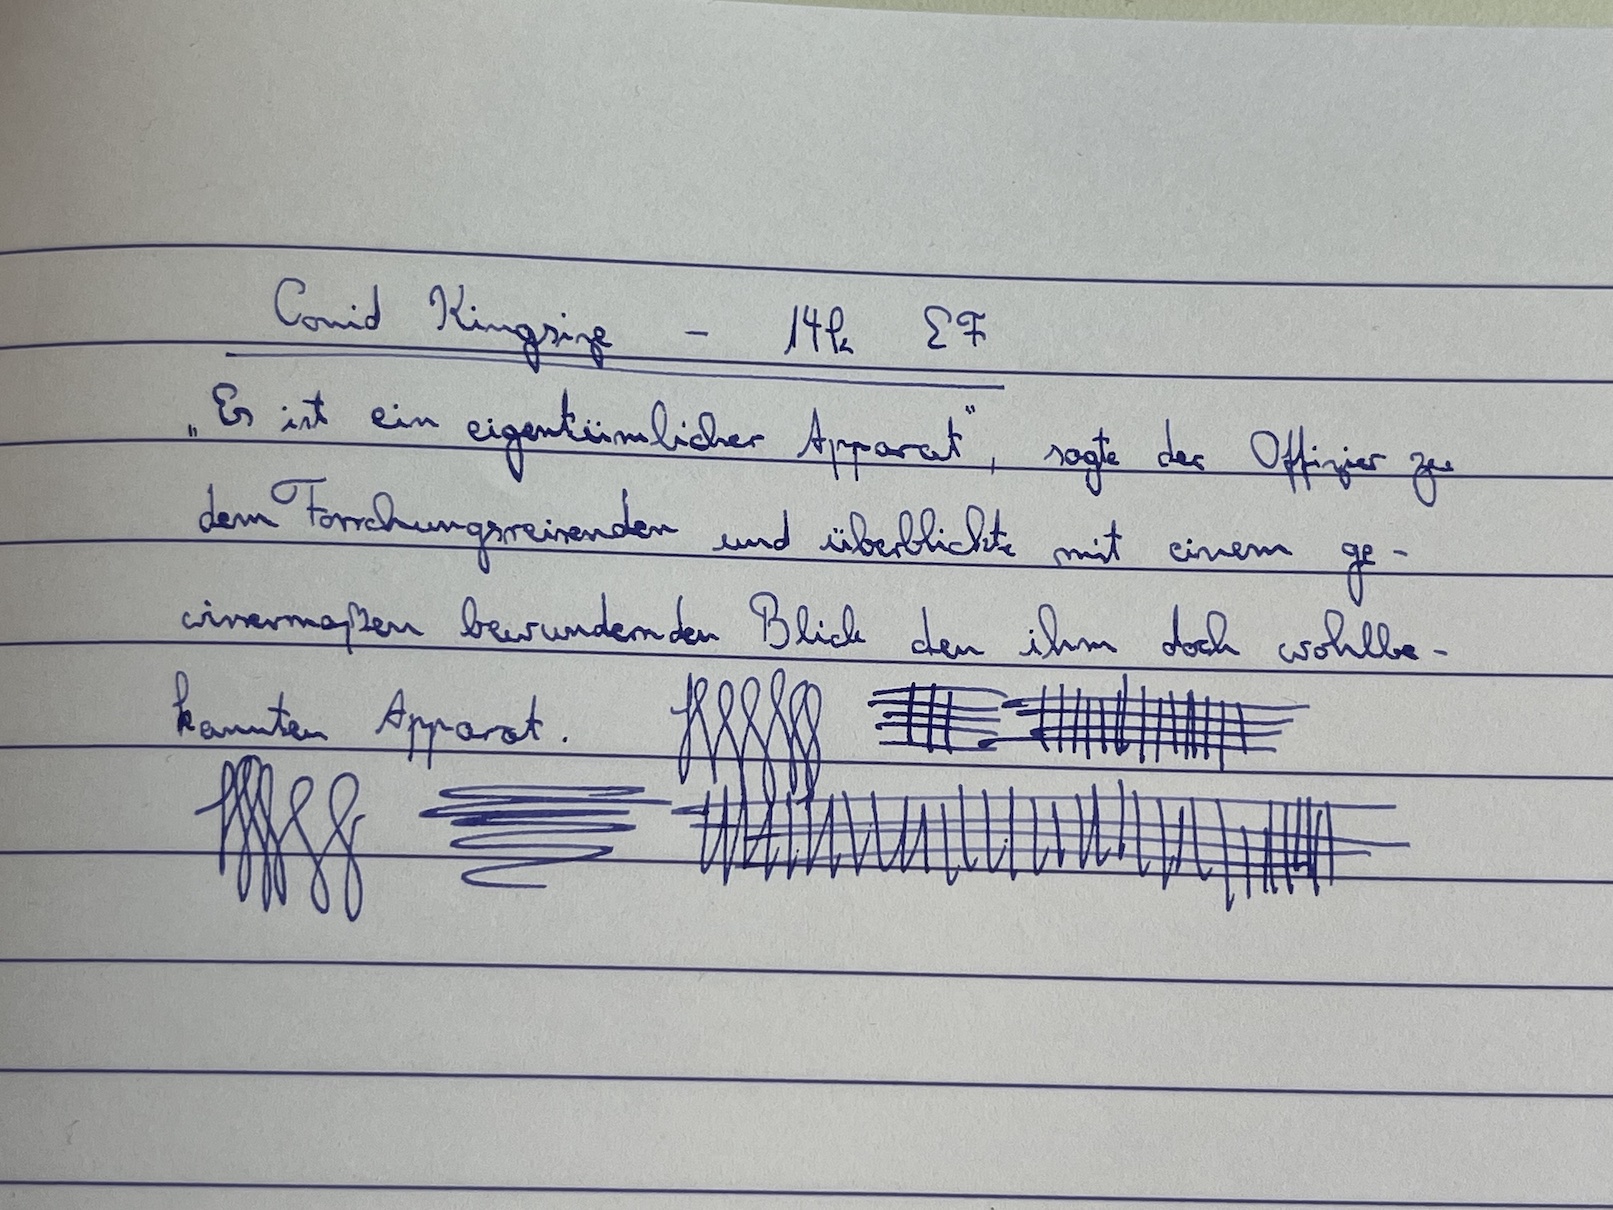 Conid Kingsize - 14k EF
„Es ist ein eigentümlicher Apparat", sagte der Offizier zu
dem Forschungsreisenden und überblickte mit einem ge-
wissermaßen bewundernden Blick den ihm doch wohlbe-
kannten Apparat.